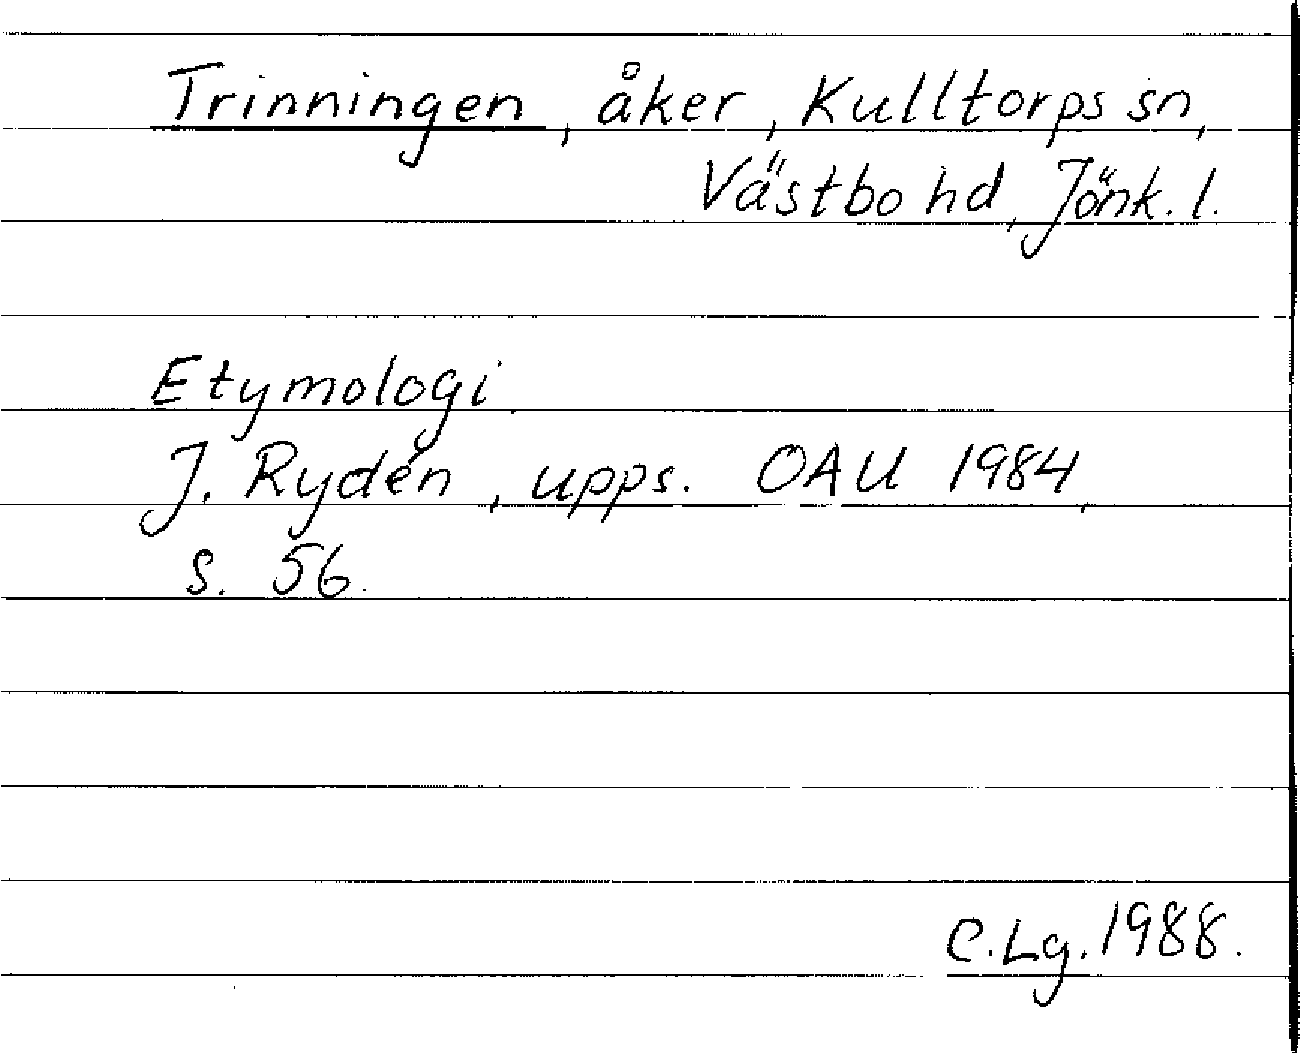 Trinningen, åker, Kulltorps sn,
Västbo hd, Jönk. l.
Etymologi.
J. Rydén, upps. OAU 1984,
s. 56.
C.Lg. 1988.